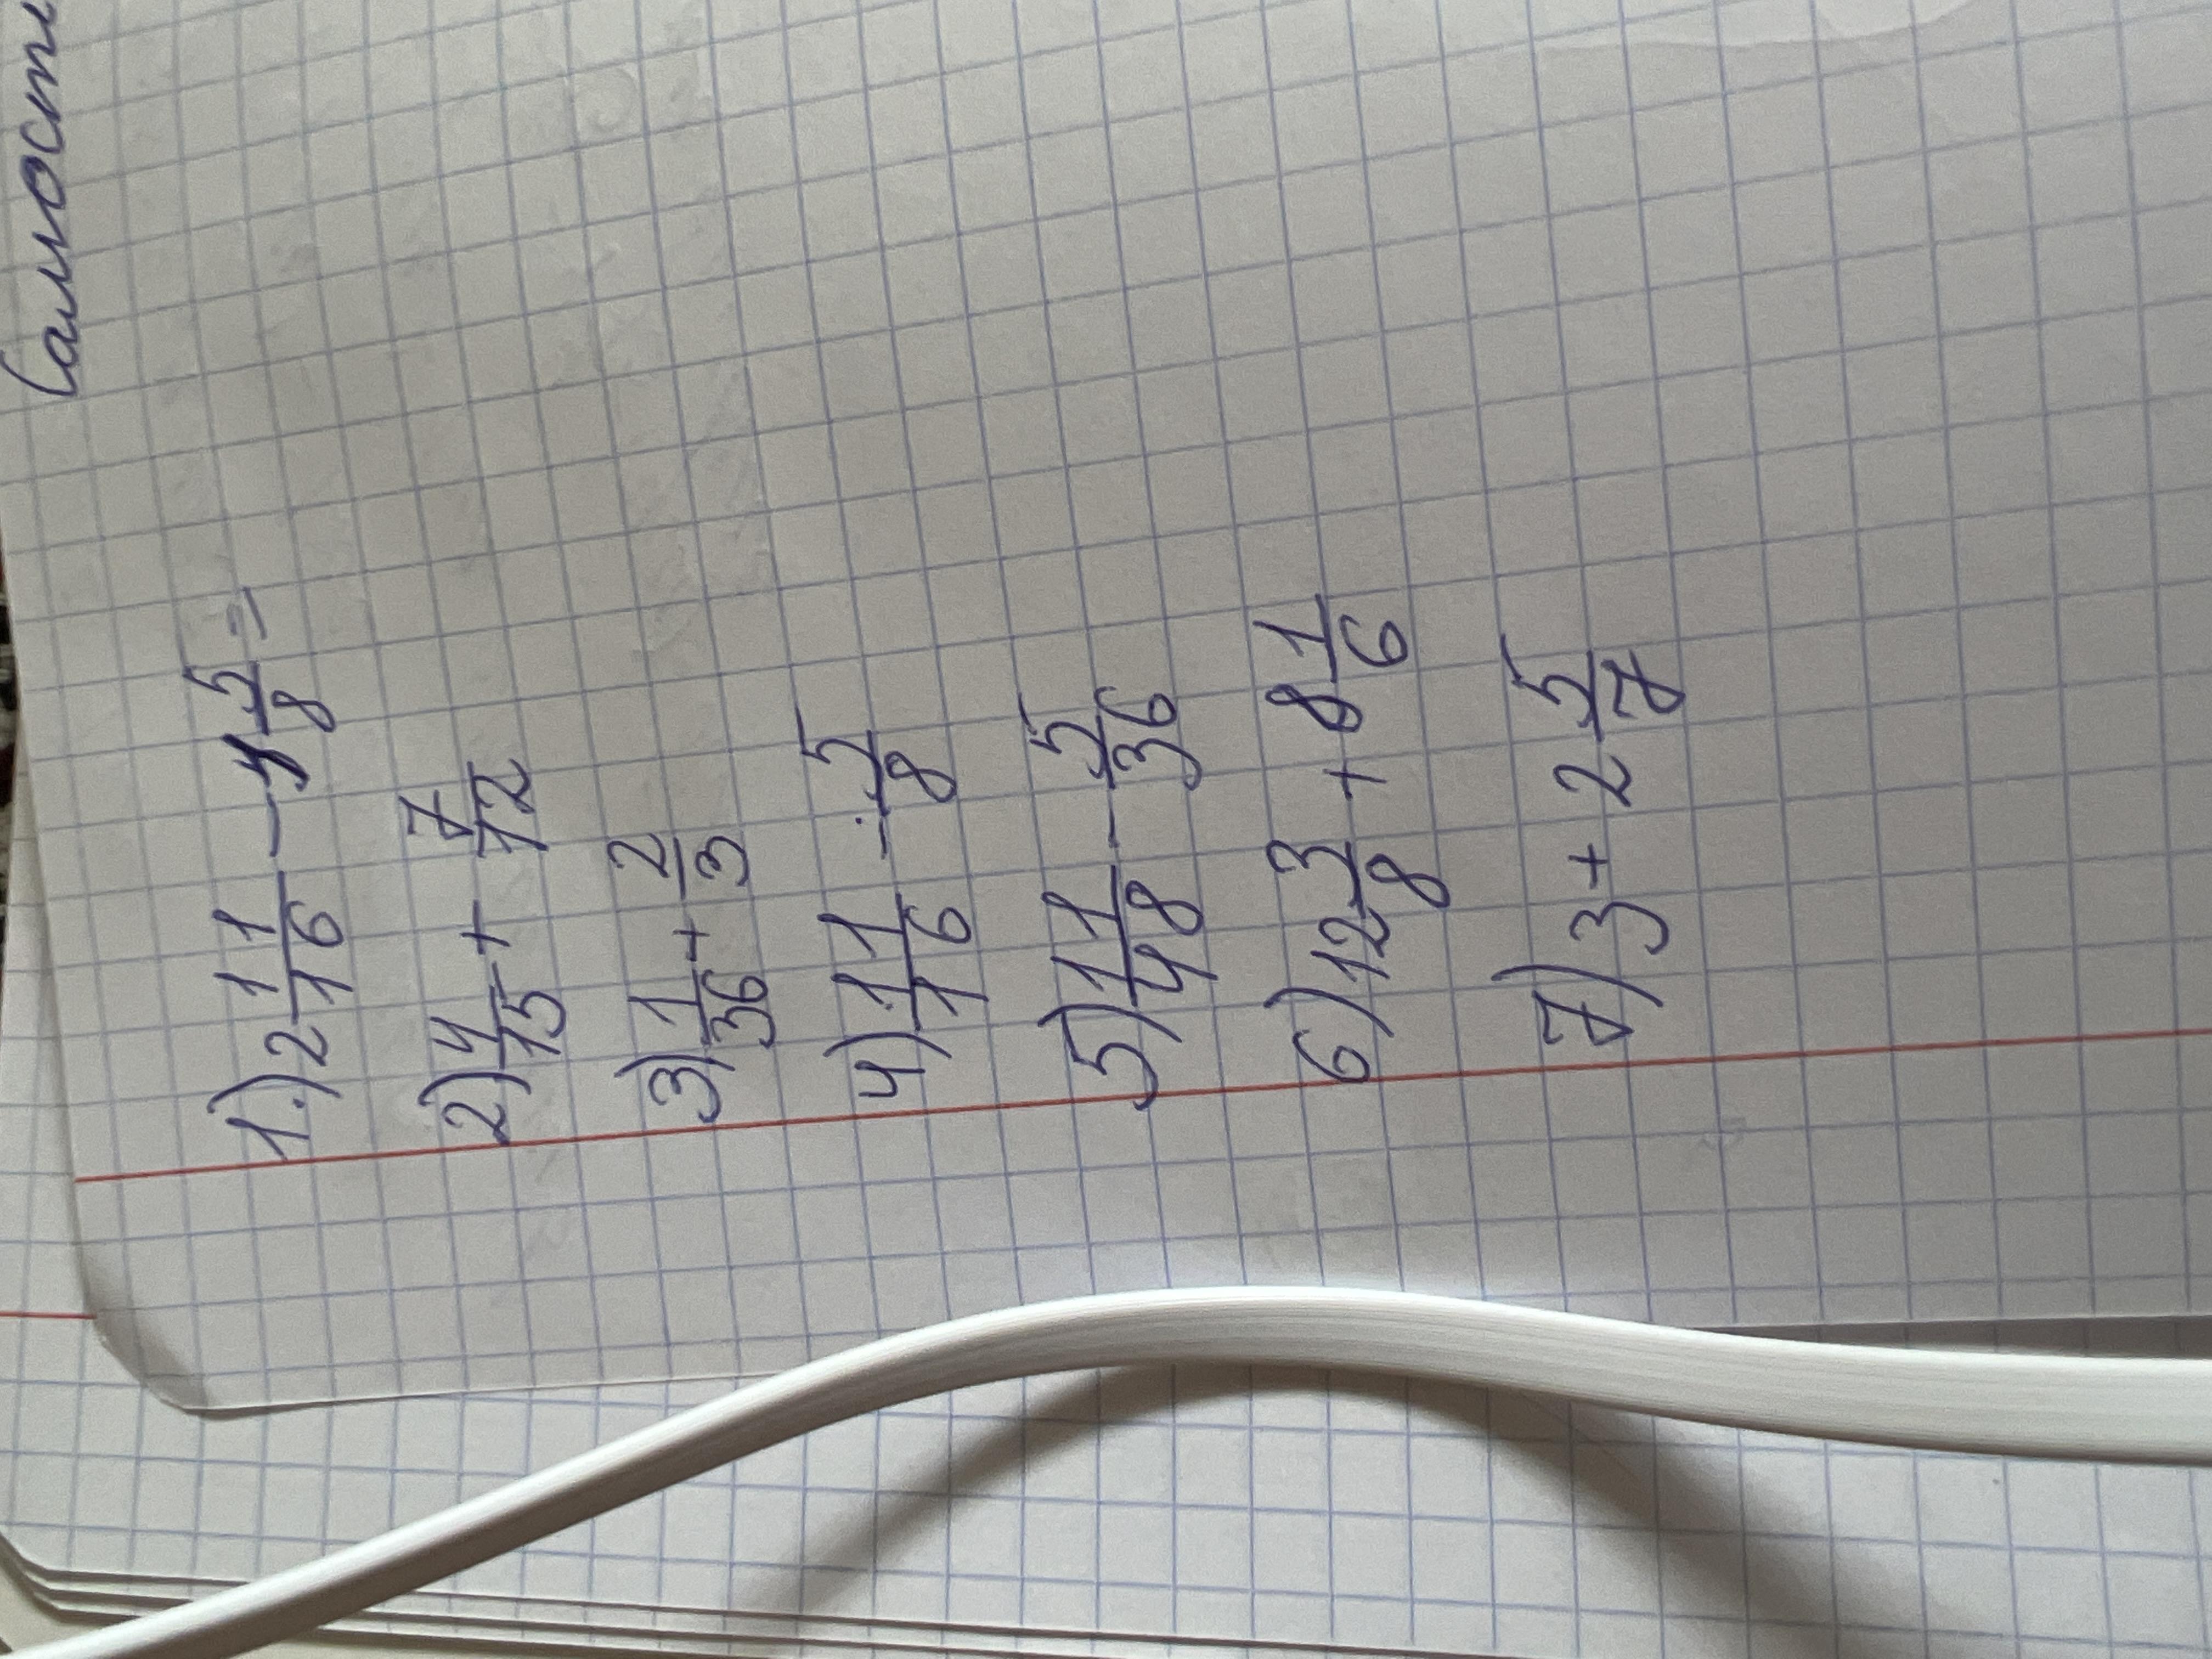 Самост
1.) 2 11/16 - 1 5/8 =
2) 4/15 + 7/12
3) 1/36 + 2/3
4) 11/16 - 5/8
5) 11/48 - 5/36
6) 12 3/8 + 8 1/6
7) 3 + 2 5/7